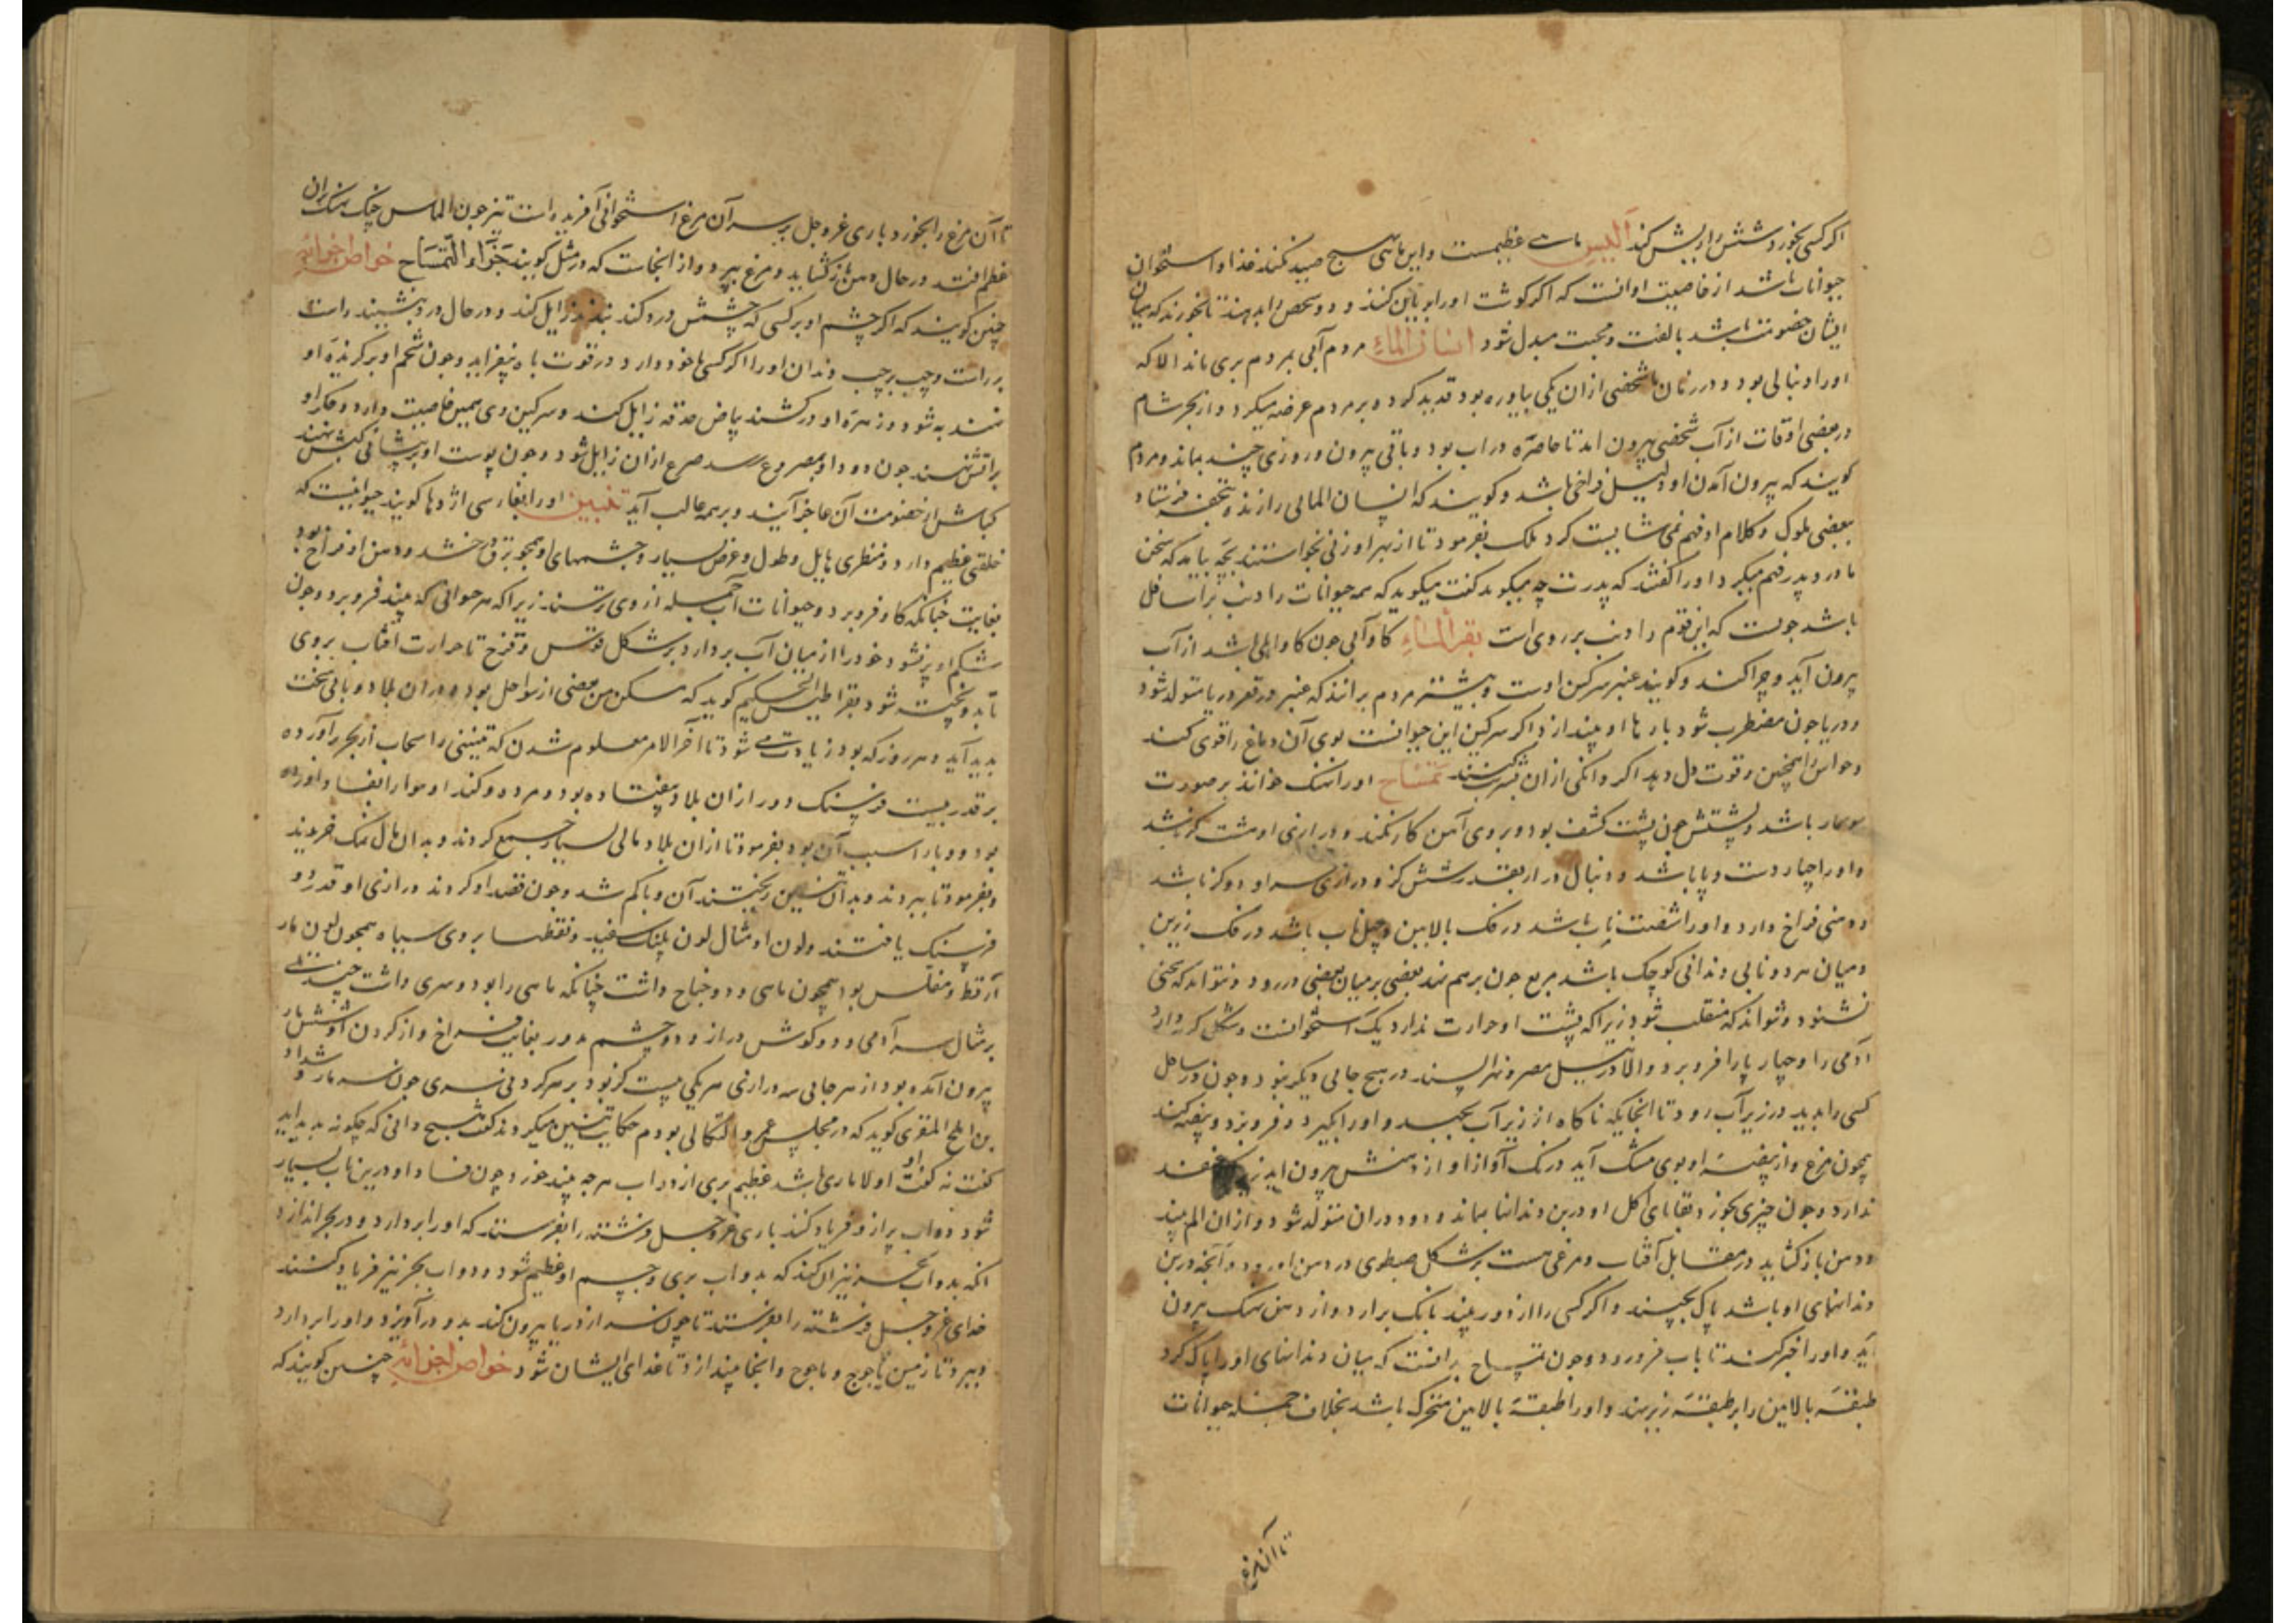 اکر کسی بخورد شش را و بیش کند البس ماهی عظیمست و این ماهی هیچ صید نکند غذا و استخوان
حیوانات باشد از خاصیت او انست که اکر کوشت او را بریان کنند و دو شخص را بدهند تا بخورند که میان
ایشان خصومت باشد بالفت و محبت مبدل شود انسان الماء مردم آبی بمردم بری ماند الا که
او را دنبالی بود و در زمان ما شخصی از ان یکی بیاورده بود قدید کرده و بر مردم عرضه میکرد و از بحر شام
در بعضی اوقات از آب شخصی بیرون اید تا خاصره در اب بود و باقی بیرون و روزی چند بماند و مردم
کویند که بیرون آمدن او دلیل فراخی باشد و کویند که انسان المائی را زنده بتحفه فرستاد
ببعضی ملوک و کلام او فهم نمی شایست کرد ملک بفرمود تا از بهر او زنی بخواستند بچه بیامد که سخن
مادر و پدر فهم میکرد او را کفتند که پدرت چه میکوید کفت میکوید که همه حیوانات را دنب بر اسافل
باشد چونست که این قوم را دنب بر روی است بقر الماء کاو آبی چون کاو اهلی باشد از آب
بیرون آید و چرا کند و کویند عنبر سرکین اوست و بیشتر مردم برانند که عنبر در قعر دریا متولد شود
و دریا چون مضطرب شود بارها او بیندازد اکر سرکین این حیوانست بوی آن دماغ را قوی کند
و حواس را همچنین و قوت دل دهد اکر دانکی از ان شربت کنند تمساح او را نهنک خوانند بر صورت
سوسمار باشد و پشتش چون پشت کشف بود و بروی آهن کار نکند و درازی او هشت کز باشد
و او را چهار دست و پا باشد و دنبال دراز بقدر شش کز و درازی سر او دو کز باشد
دهنی فراخ دارد و او را شصت ناب باشد در فک بالایین و چهل ناب باشد در فک زیرین
و میان هر دو نابی دندانی کوچک باشد مربع چون بر هم نهد بعضی بر میان بعضی در رود و نتواند که منحنی
نشود و نتواند که منقلب شود زیرا که پشت او حرارت ندارد یک استخوانست و شکل کریه دارد
آدمی را و چهار پا را فرو برد و الا در نیل مصر و نهر السند در هیچ جایی دیکر نبود و چون در ساحل
کسی را بدید در زیر آب رود تا انجایکه ناکاه از زیر آب بجهد و او را بکیرد و فرو برد و بیضه کند
همچون مرغ و از بیضه او بوی مشک آید و رنک آواز او از دهنش بیرون اید زیرا منفذ
ندارد و چون چیزی بخورد بقایای اکل او در بن دندانها بماند و دود در ان متولد شود و از ان الم بیند
و دهن باز کشاید در مقابل آفتاب و مرغی هست بر شکل طیطوی در دهن او رود و آنچه در بن
دندانهای او باشد پاک بچیند و اکر کسی را از دور بیند بانک بر ارد و از دهن نهنک بیرون
آید و او را خبر کند تا باب فرو رود و چون تمساح بدانست که میان دندانهای او را پاک کرد
طبقه بالایین را بر طبقه زیر نهد و او را طبقه بالایین متحرک باشد بخلاف جمله حیوانات
تا آن مرغ
تا آن مرغ را بخورد باری عز و جل بر سر آن مرغ استخوانی آفریده است تیز چون الماس چنک نهنک بر ان
عظم افتد در حال دهن باز کشاید و مرغ بپرد و از انجاست که در مثل کویند جزاء التمساح خواص اجزائه
چنین کویند که اکر چشم او بر کسی که چشمش درد کند بندند زایل کند و در حال درد بنشیند راست
بر راست و چپ بر چپ دندان او را اکر کسی با خود دارد در قوت باه بیفزاید و چون شحم او بر کزیده او
نهند به شود و زهره او در کشند بیاض حدقه زایل کند و سرکین وی همین خاصیت دارد و جکر او
بر اتش نهند چون دود او بمصروع رسد صرع از ان زایل شود و چون پوست او بر پیشانی کبش نهند
کباش از خصومت آن عاجز آیند و بر همه غالب آید تنین او را بفارسی اژدها کویند حیوانیست که
خلقتی عظیم دارد و منظری هایل و طول و عرض بسیار و چشمهای او همچو برق درخشد و دهن او فراخ بود
بغایت چنانکه کاو فرو برد و حیوانات آب جمله از وی ترسند زیرا که هر حیوانی که بیند فرو برد و چون
شکم او پر شود خود را از میان آب بردارد بر شکل قوس و قزح تا حرارت آفتاب بروی
تابد و پخته شود بقراطیس الحکیم کوید که مسکن من بعضی از سواحل بود و در ان بلاد وبائی سخت
پدید آید و هر روز که بود زیادت می شود تا آخر الامر معلوم شدن که تنینی را سحاب از بحر بر آورده
بر قدر بیست فرسنک دور از ان بلاد بیفتاده بود و مرده و کند او هوا را بفساد آورده
بود و وبا را سبب آن بود بفرمود تا از ان بلاد مالی بسیار جمع کردند و بدان مال نمک خریدند
و بفرمود تا ببردند و بدان تنین ریختند آن وبا کم شد و چون قصد او کردند درازی او قدر دو
فرسنک یافتند و لون او مثال لون پلنک سفید و نقطها بروی سیاه همچون لون مار
ارقط و مفلس بود همچون ماهی و دو جناح داشت چنانکه ماهی را بود و سری داشت چند تلی
بر مثال سر آدمی و دو کوش دراز و دو چشم مدور بغایت فراخ و از کردن او شش مار
بیرون آمده بود از هر جایی سه درازی هر یکی بیست کز بود بر هر کردنی سری چون سر مار و شداد
بن افلح المقری کوید که در مجلس عمرو البکالی بودم حکایت تنین میکردند کفت هیچ دانی که چکونه پدید اید
کفت نه کفت او اولا ماری باشد عظیم بری از دواب هر چه بیند خورد و چون فساد او درین باب بسیار
شود دواب بر ازو فریاد کند باری عز و جل فرشته را بفرستد که او را بردارد و در بحر اندازد
انکه بدواب بحر نیز ان کند که بدواب بری و جسم او عظیم شود و دواب بحر نیز فریاد کنند
خدای عز و جل فرشته را بفرستد تا چون سر از دریا بیرون کند بدو در آویزد و او را بردارد
و ببرد تا زمین یاجوج و ماجوج و انجا بیندازد تا غذای ایشان شود خواص اجزائه چنین کویند که